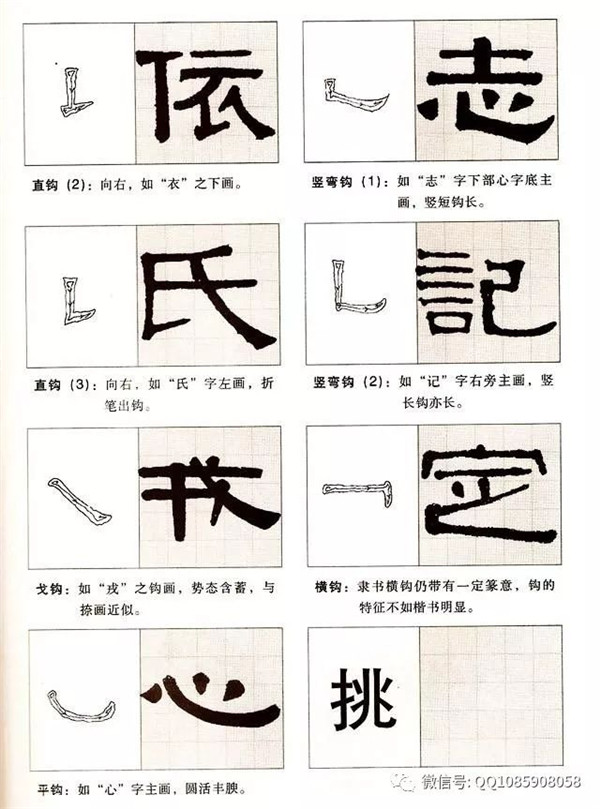 依
直钩（2）：向右，如“衣”之下画。
志
竖弯钩（1）：如“志”字下部心字底主
画，竖短钩长。
氏
直钩（3）：向右，如“氏”字左画，折
笔出钩。
記
竖弯钩（2）：如“记”字右旁主画，竖
长钩亦长。
戎
戈钩：如“戎”之钩画，势态含蓄，与
捺画近似。
定
横钩：隶书横钩仍带有一定篆意，钩的
特征不如楷书明显。
心
平钩：如“心”字主画，圆活丰腴。
挑
微信号: QQ1085908058